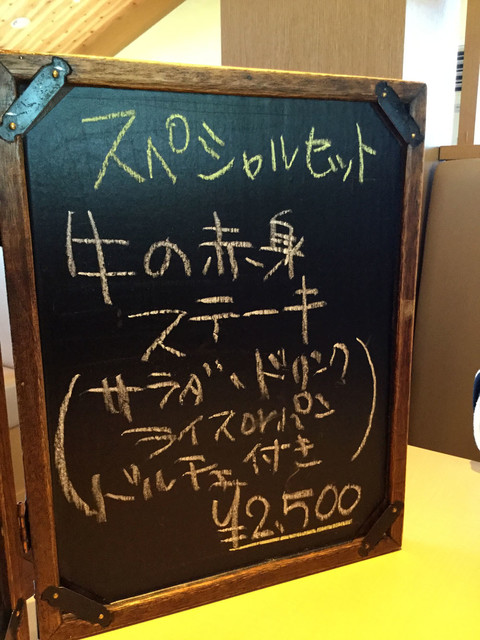 スペシャルセット
牛の赤身
ステーキ
(サラダ、ドリンク
ライスorパン
ドルチェ付き)
¥2,500